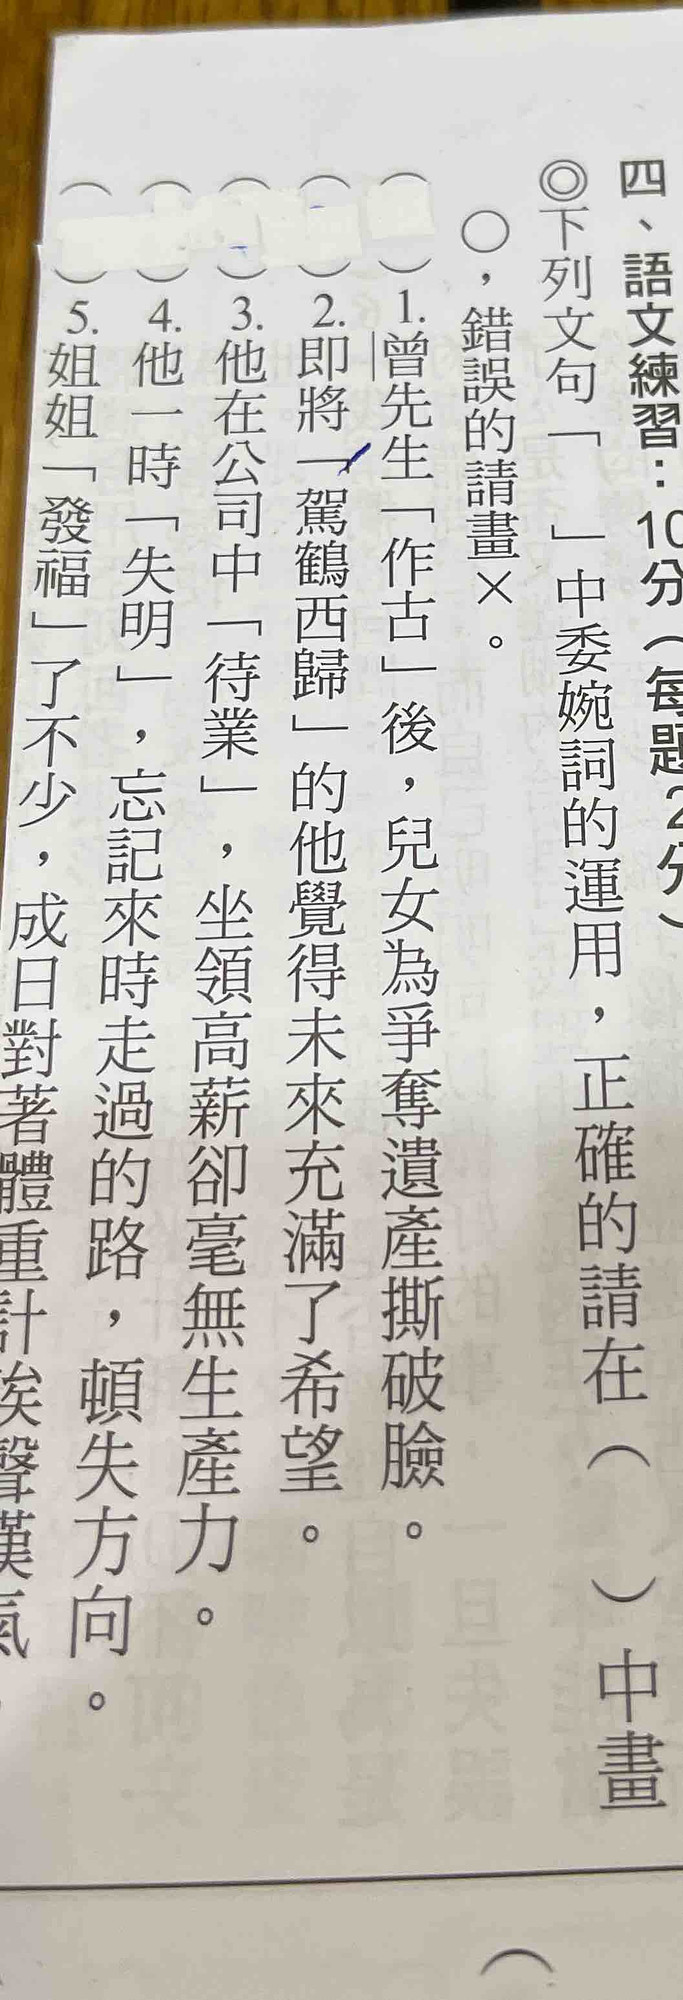 四、語文練習：10分（每題2分）
◎下列文句「　」中委婉詞的運用，正確的請在（　）中畫
○，錯誤的請畫×。
（　）1.曾先生「作古」後，兒女為爭奪遺產撕破臉。
（　）2.即將「駕鶴西歸」的他覺得未來充滿了希望。
（　）3.他在公司中「待業」，坐領高薪卻毫無生產力。
（　）4.他一時「失明」，忘記來時走過的路，頓失方向。
（　）5.姐姐「發福」了不少，成日對著體重計唉聲嘆氣。
（